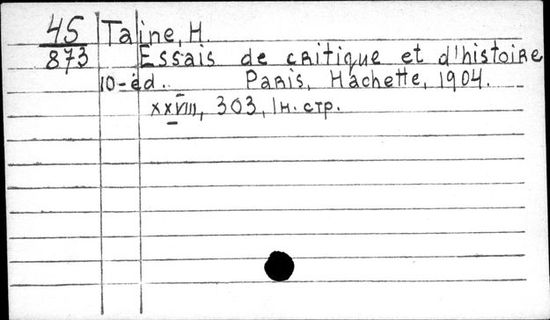 45 Taine, H.
873 Essais de critique et d'histoire
10-éd. Paris, Hachette, 1904.
xxviii, 303, 1 н. стр.